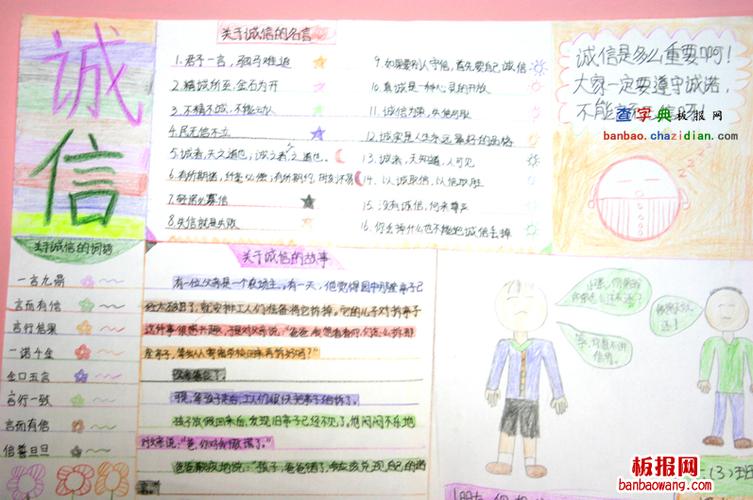 诚信
关于诚信的名言
1.君子一言，驷马难追
2.精诚所至，金石为开
3.不精不诚，不能动人
4.民无信不立
5.诚者，天之道也，诚之者，人之道也。
7.轻诺必寡信
8.失信就是失败
9.如果要别人守信，首先要自己诚信
10.真诚是一种心灵的开放
11.诚信为本，
12.诚实是人生永远最好的品格
13.诚者，天知道，人可见
14.以诚取信，以信取胜
15.没有诚信，何来尊严
16.你丢掉什么也不能把诚信丢掉
诚信是多么重要啊！
大家一定要遵守诚诺，
不能
查字典板报网
banbao.chazidian.com
关于诚信的词语
一言九鼎
言而有信
言行信果
一诺千金
金口玉言
言行一致
言而有信
信誓旦旦
关于诚信的故事
有一位父亲是一个农场主，有一天，他觉得园中的那座亭子已
经太破旧了，就安排工人们准备将它拆掉。它的儿子对拆亭子
这件事很感兴趣，于是对父亲说："爸爸，
座亭子，等我从寄宿学校回来再拆好吗？"
父亲答应了。
可是，等孩子走后，工人们很快把亭子拆掉了。
孩子放假回来后，发现旧亭子已经不见了。他闷闷不乐地
对父亲说："爸，你对我撒谎了。"
(3)班
板报网
banbaowang.com